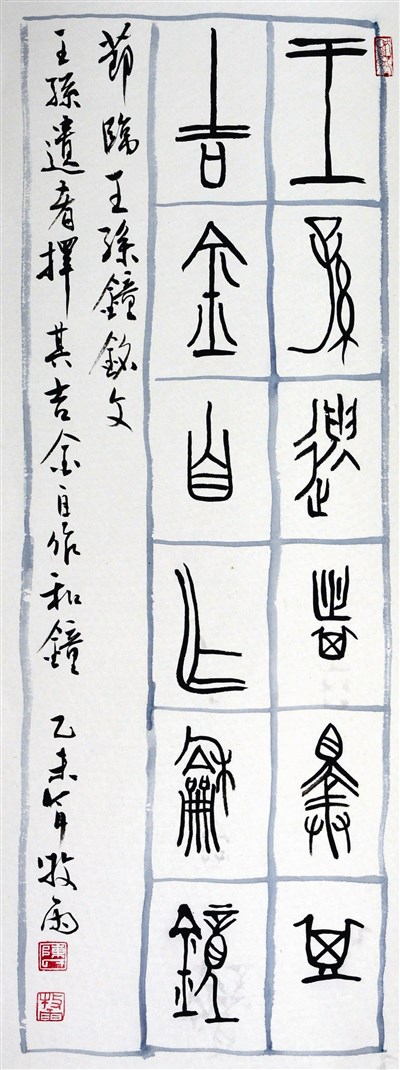 王孫遺者擇其
吉金自乍龢鐘
節臨王孫鐘銘文
王孫遺者擇其吉金自作和鐘 乙未 牧雨